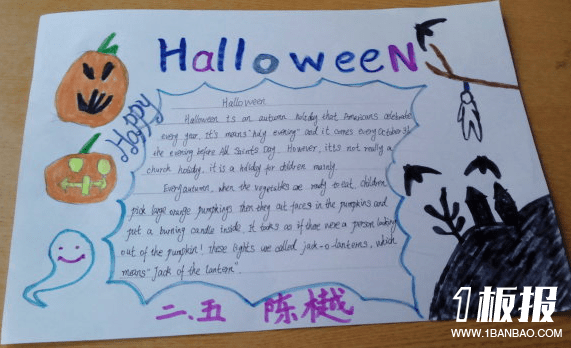 Halloween
Happy
Halloween
Halloween is an autumn holiday that Americans celebrate
every year. It's means "holy evening" and it comes every October 31
the evening before All Saints Day. However, it's not really a
church holiday, it is a holiday for children mainly.
Every autumn, when the vegetables are ready to eat, children
pick large orange pumpkings. then they cut faces in the pumpkins and
put a burning candle inside. It looks as if there were a person looking
out of the pumpkin! these lights are called jack-o-lanterns, which
means "Jack of the lantern".
二.五 陈樾
1板报
WWW.1BANBAO.COM